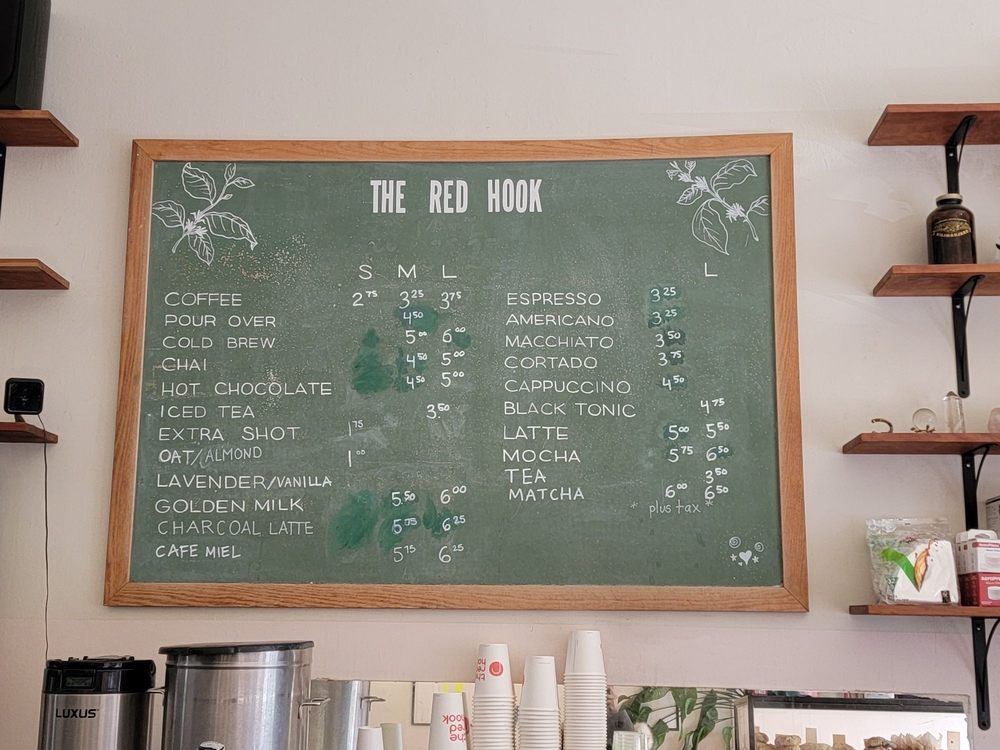 THE RED HOOK
S M L
COFFEE 2.75 3.25 3.75
POUR OVER 4.50
COLD BREW 5.00 6.00
CHAI 4.50 5.00
HOT CHOCOLATE 4.50 5.00
ICED TEA 3.50
EXTRA SHOT 1.75
OAT/ALMOND 1.00
LAVENDER/VANILLA
GOLDEN MILK 5.50 6.00
CHARCOAL LATTE 5.75 6.25
CAFE MIEL 5.75 6.25
L
ESPRESSO 3.25
AMERICANO 3.25
MACCHIATO 3.50
CORTADO 3.75
CAPPUCCINO 4.50
BLACK TONIC 4.75
LATTE 5.00 5.50
MOCHA 5.75 6.50
TEA 3.50
MATCHA 6.00 6.50
* plus tax *
LUXUS
the red hook